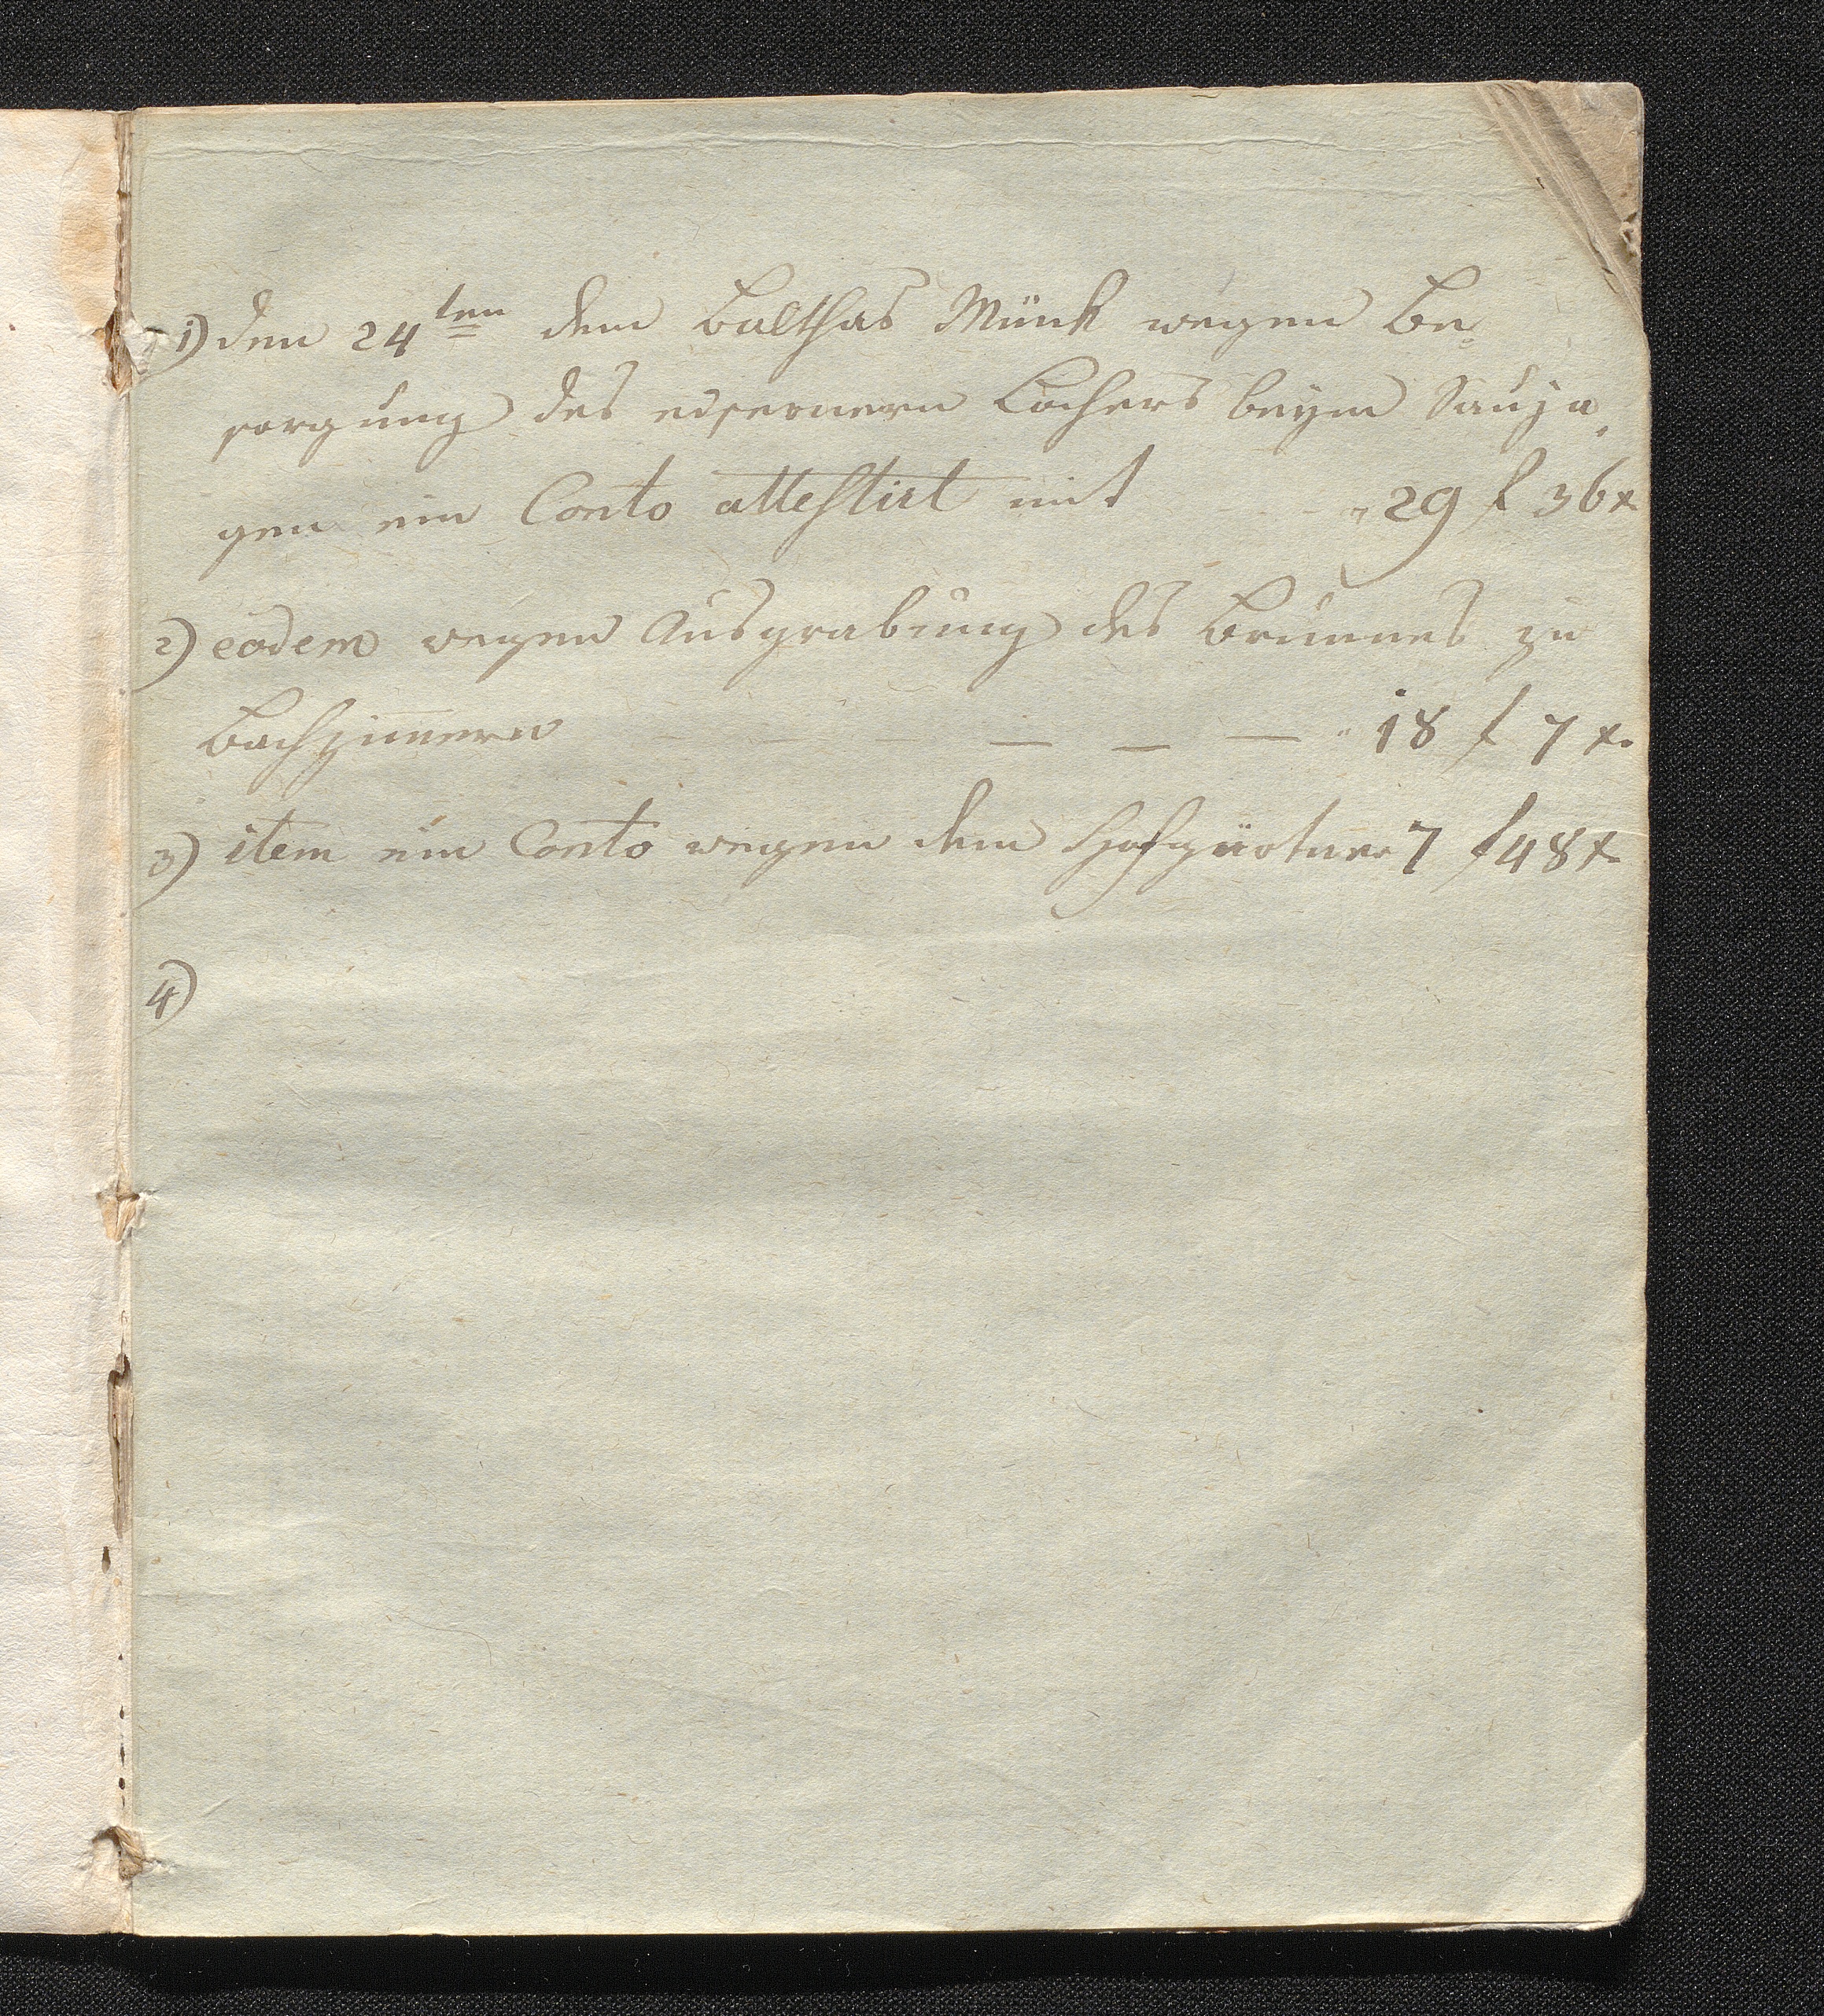 1) den 24ten dem Balthas Münk wegen Be-
sorgung des eisernern Kochers beym Sauja-
gen ein Conto attestirt mit - - - 29 f 36 x
2) eodem wegen Ausgrabung des Brunnes zu
Bachzimmern - - - - - - 18 f 7 x.
3) item ein Conto wegen dem Hofgärtner 7 f 48 x
4)